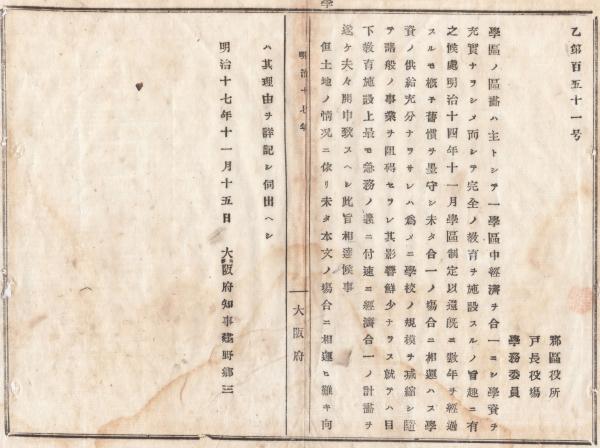 乙第百五十一号
郡區役所
戸長役場
學務委員
學區ノ區畫ハ主トシテ一學區中經濟ヲ合一ニシ學資ヲ
充實ナラシメ而シテ完全ノ教育ヲ施設スルノ旨趣ニ有
之候處明治十四年十一月學區制定以還既ニ數年ヲ經過
スルモ概子舊慣ヲ墨守シ未タ合一ノ塲合ニ相運ハス學
資ノ供給充分ナラサレハ爲メニ學校ノ規模ヲ減縮シ隨
テ諸般ノ事業ヲ阻碍セラレ其影響鮮少ナラス就テハ目
下教育施設上最モ急務ノ義ニ付速ニ經濟合一ノ計畫ヲ
遂ケ夫々開申致スヘシ此旨相達候事
但土地ノ情况ニ依リ未タ本文ノ塲合ニ相運ヒ難キ向
明治十七年
大阪府
ハ其理由ヲ詳記シ伺出ヘシ
明治十七年十一月十五日　大阪府知事建野郷三